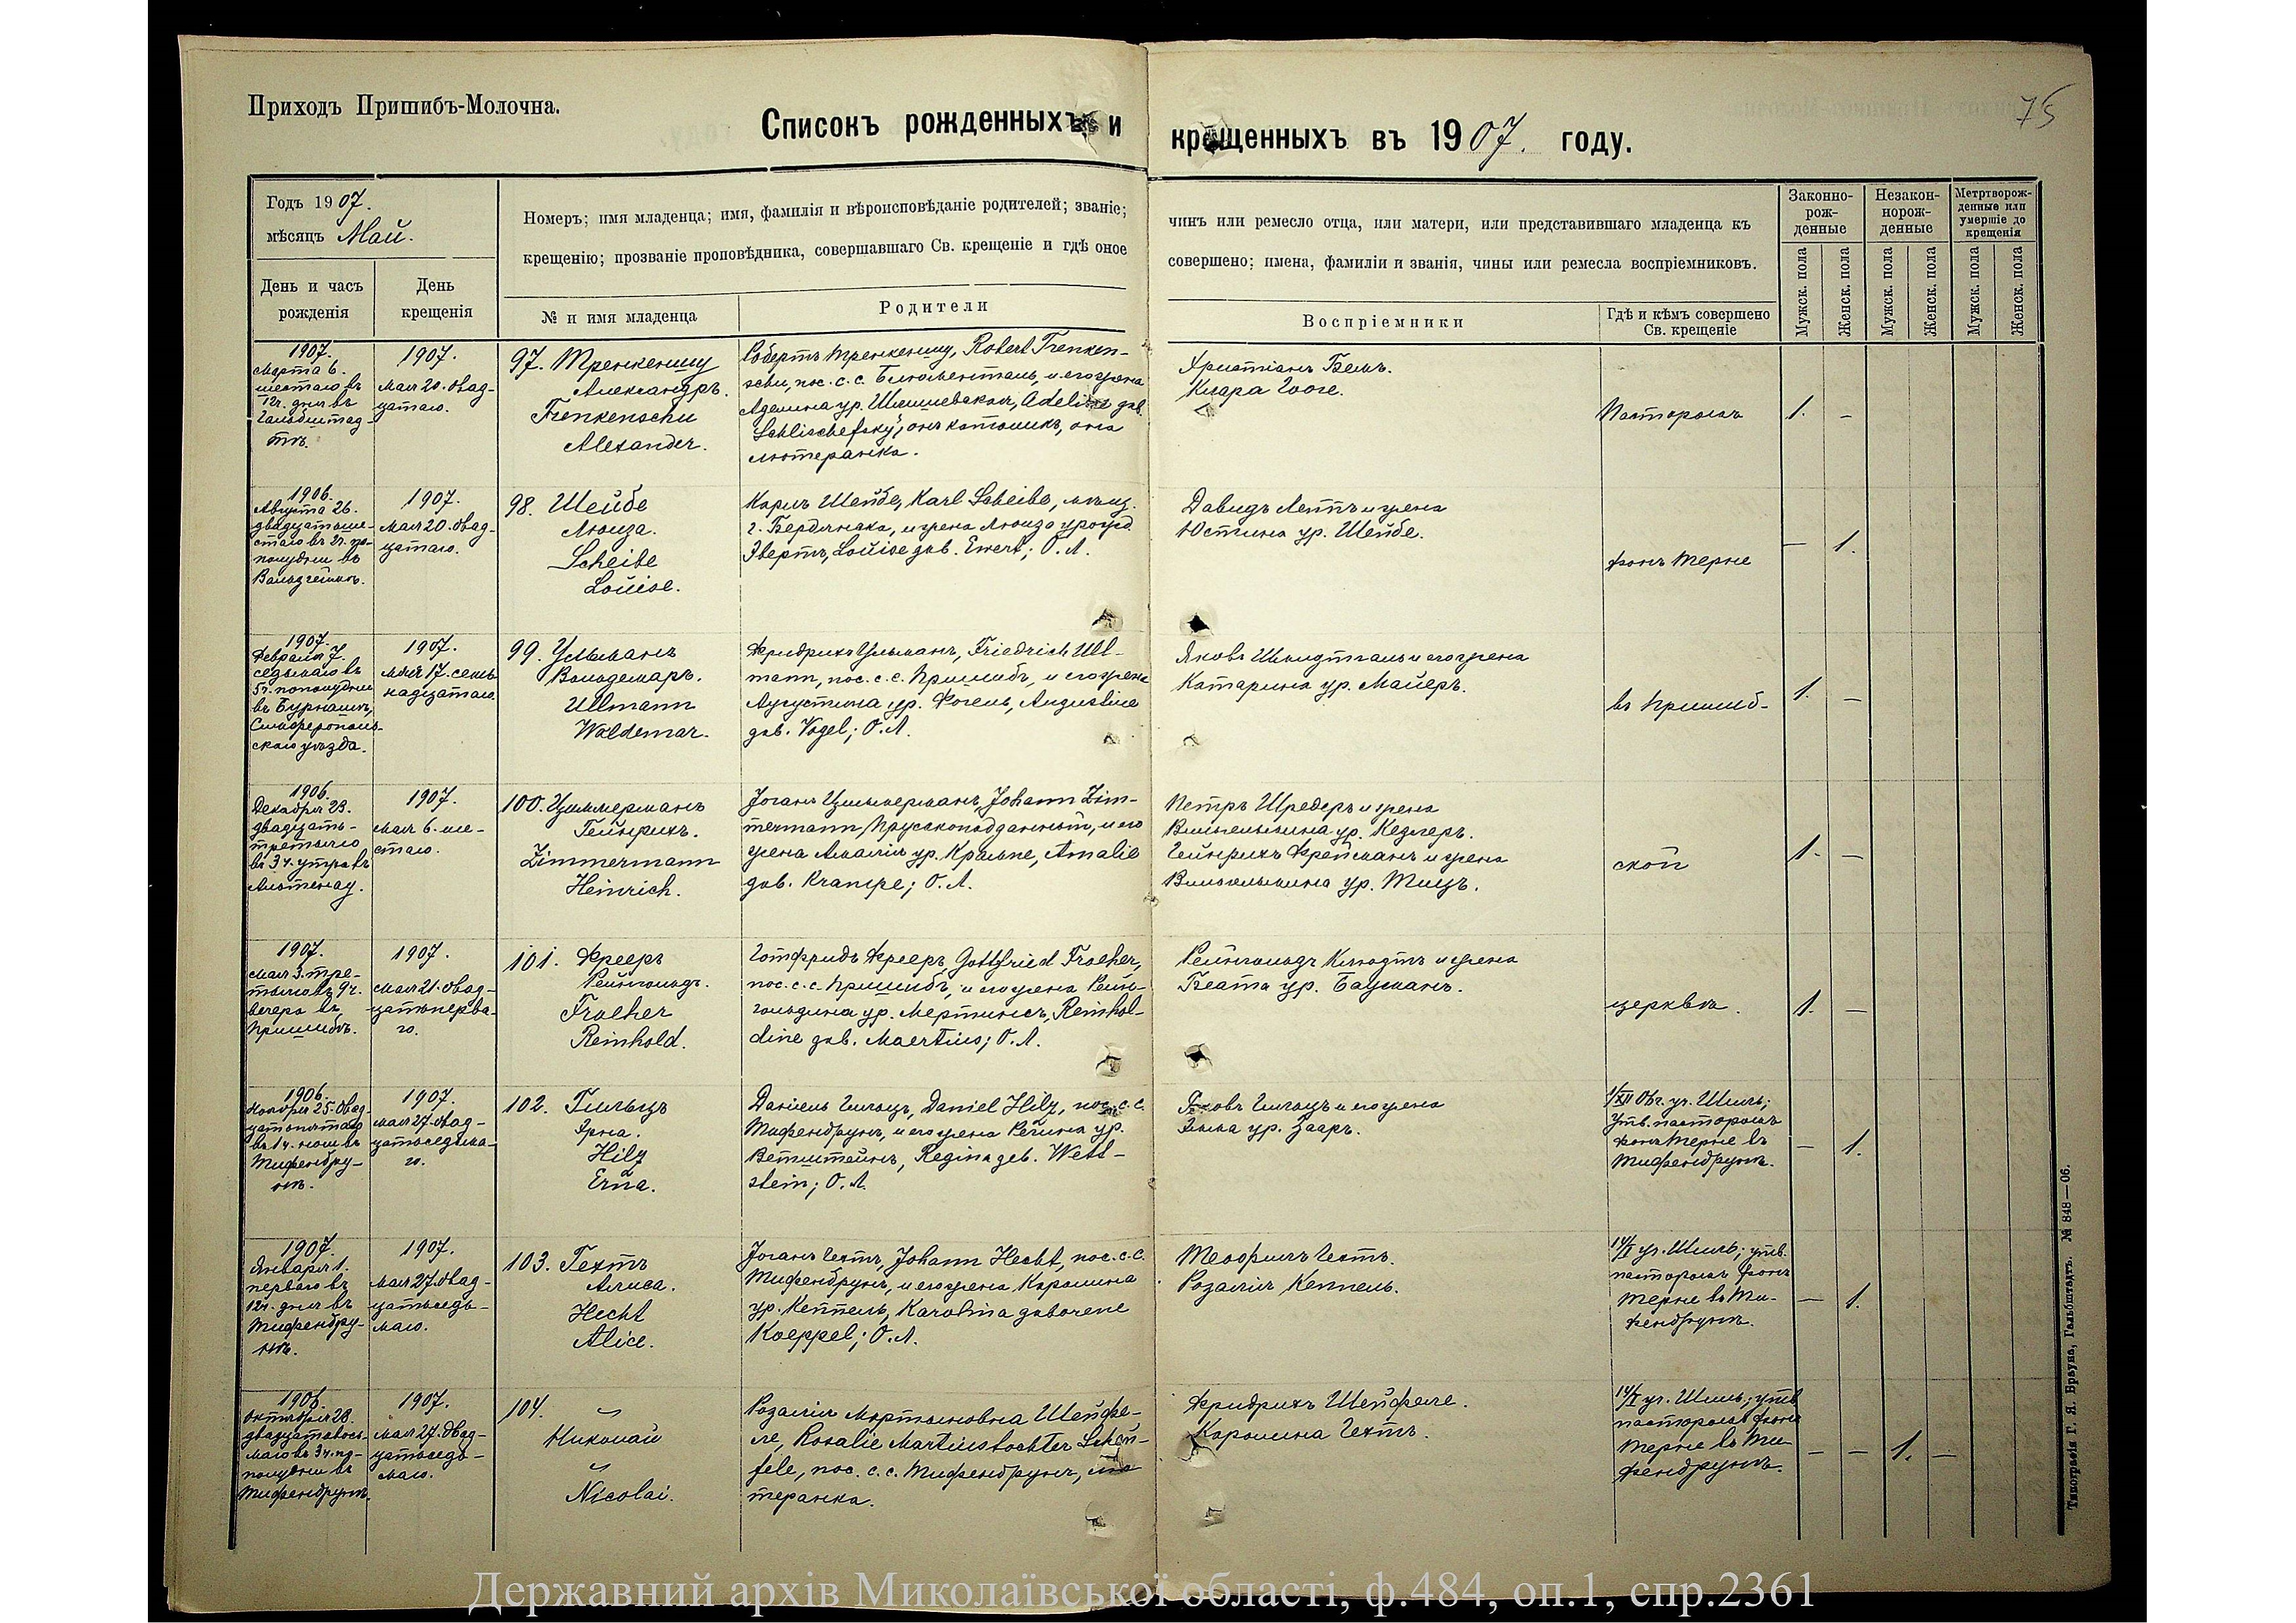 Приходъ Пришибъ-Молочна.
75
Списокъ рожденныхъ и крещенныхъ въ 1907. году.
Годъ 1907.
мѣсяцъ Май.
День и часъ
рожденія
День
крещенія
Номеръ; имя младенца; имя, фамилія и вѣроисповѣданіе родителей; званіе;
крещенію; прозваніе проповѣдника, совершавшаго Св. крещеніе и гдѣ оное
№ и имя младенца
Родители
чинъ или ремесло отца, или матери, или представившаго младенца къ
совершено; имена, фамиліи и званія, чины или ремесла воспріемниковъ.
Воспріемники
Гдѣ и кѣмъ совершено
Св. крещеніе
Законно-
рож-
денные
Незакон-
норож-
денные
Метртворож-
денные или
умершіе до
крещенія
Мужск. пола
Женск. пола
Мужск. пола
Женск. пола
Мужск. пола
Женск. пола
1907.
Марта 6.
шестаго въ
12ч. дня въ
Гальбштад-
тѣ.
1907.
Мая 20. двад-
цатаго.
97. Тренкеншу
Александръ.
Trenkenschu
Alexander.
Робертъ Тренкеншу, Robert Trenken-
schu, пос. с. с. Блюменталь, и его жена
Аделина ур. Шлишевская, Adeline gеb.
Schlischefsky; онъ католикъ, она
лютеранка.
Христіанъ Бемъ.
Клара Гооге.
Пасторомъ
1. –
1906.
Августа 26.
двадцатьше-
стаго въ 2ч. по-
полудни въ
Вальдгеймѣ.
1907.
Мая 20. двад-
цатаго.
98. Шейбе
Луиза.
Scheibe
Louise.
Карлъ Шейбе, Karl Scheibe, мѣщ.
г. Бердянска, и жена Луиза урожд.
Эвертъ, Louise geb. Ewert; О. Л.
Давидъ Леппъ и жена
Юстина ур. Шейбе.
фонъ Терне
– 1.
1907.
Февраля 7.
седьмаго въ
5ч. пополудни
въ Бурнашѣ,
Симферополь-
скаго уѣзда.
1907.
Мая 17. семь-
надцатаго.
99. Ульманъ
Вольдемаръ.
Ullmann
Waldemar.
Фридрихъ Ульманъ, Friedrich Ull-
mann, пос. с. с. Пришибъ, и его жена
Августина ур. Фогель, Augustine
geb. Vogel; О. Л.
Яковъ Шмидтгаль и его жена
Катарина ур. Майеръ.
въ Пришиб-
1. –
1906.
Декабря 23.
двадцать-
третьяго
въ 3ч. утра въ
Альтенау.
1907.
Мая 6. ше-
стаго.
100. Циммерманъ
Гейнрихъ.
Zimmermann
Heinrich.
Іоганъ Циммерманъ, Johann Zim-
mermann, Прусскоподданный, и его
жена Амалія ур. Крампе, Amalie
geb. Krampe; О. Л.
Петръ Шредеръ и жена
Вильгельмина ур. Кезлеръ.
Гейнрихъ Фрейманъ и жена
Вильгельмина ур. Тицъ.
ской
1. –
1907.
Мая 3. тре-
тьяго въ 9ч.
вечера въ
Пришибѣ.
1907.
Мая 21. двад-
цатьперва-
го.
101. Фрееръ
Рейнгольдъ.
Froeher
Reinhold.
Готфридъ Фрееръ, Gottfried Froeher,
пос. с. с. Пришибъ, и его жена Рейн-
гольдина ур. Мертинсъ, Reinhol-
dine geb. Maertins; О. Л.
Рейнгольдъ Клюдтъ и жена
Беата ур. Бауманъ.
церквѣ.
1. –
1906.
Ноября 25. двад-
цатьпятаго
въ 1ч. ночи въ
Тифенбру-
нѣ.
1907.
Мая 27. двад-
цатьседьма-
го.
102. Гильцъ
Эрна.
Hilz
Erna.
Даніель Гильцъ, Daniel Hilz, пос. с. с.
Тифенбрунъ, и его жена Регина ур.
Ветштейнъ, Regina geb. Wett-
stein; О. Л.
Яковъ Гильцъ и его жена
Эмма ур. Зааръ.
1/XII 06г. уч. Шиль;
утв. пасторомъ
фонъ Терне въ
Тифенбрунѣ.
– 1.
1907.
Января 1.
перваго въ
12ч. дня въ
Тифенбру-
нѣ.
1907.
Мая 27. двад-
цатьседь-
маго.
103. Гехтъ
Алиса.
Hecht
Alice.
Іоганъ Гехтъ, Johann Hecht, пос. с. с.
Тифенбрунъ, и его жена Каролина
ур. Кеппель, Karolina geborene
Koeppel; О. Л.
Теофилъ Гехтъ.
Розалія Кеппель.
14/I уч. Шиль; утв.
пасторомъ фонъ
Терне въ Ти-
фенбрунѣ.
– 1.
1906.
Октября 28.
двадцатьвось-
маго въ 3ч. по-
полудни въ
Тифенбрунѣ.
1907.
Мая 27. двад-
цатьседь-
маго.
104. –
Николай
–
Nicolai.
Розалія Мартыновна Шейфе-
ле, Rosalie Martinstochter Schei-
fele, пос. с. с. Тифенбрунъ, лю-
теранка.
Фридрихъ Шейфеле.
Каролина Гехтъ.
14/I уч. Шиль; утв.
пасторомъ фонъ
Терне въ Ти-
фенбрунѣ.
– – 1. –
Типографія Г. Я. Брауна, Гальбштадтъ. № 848—06.
Державний архів Миколаївської області, ф.484, оп.1, спр.2361